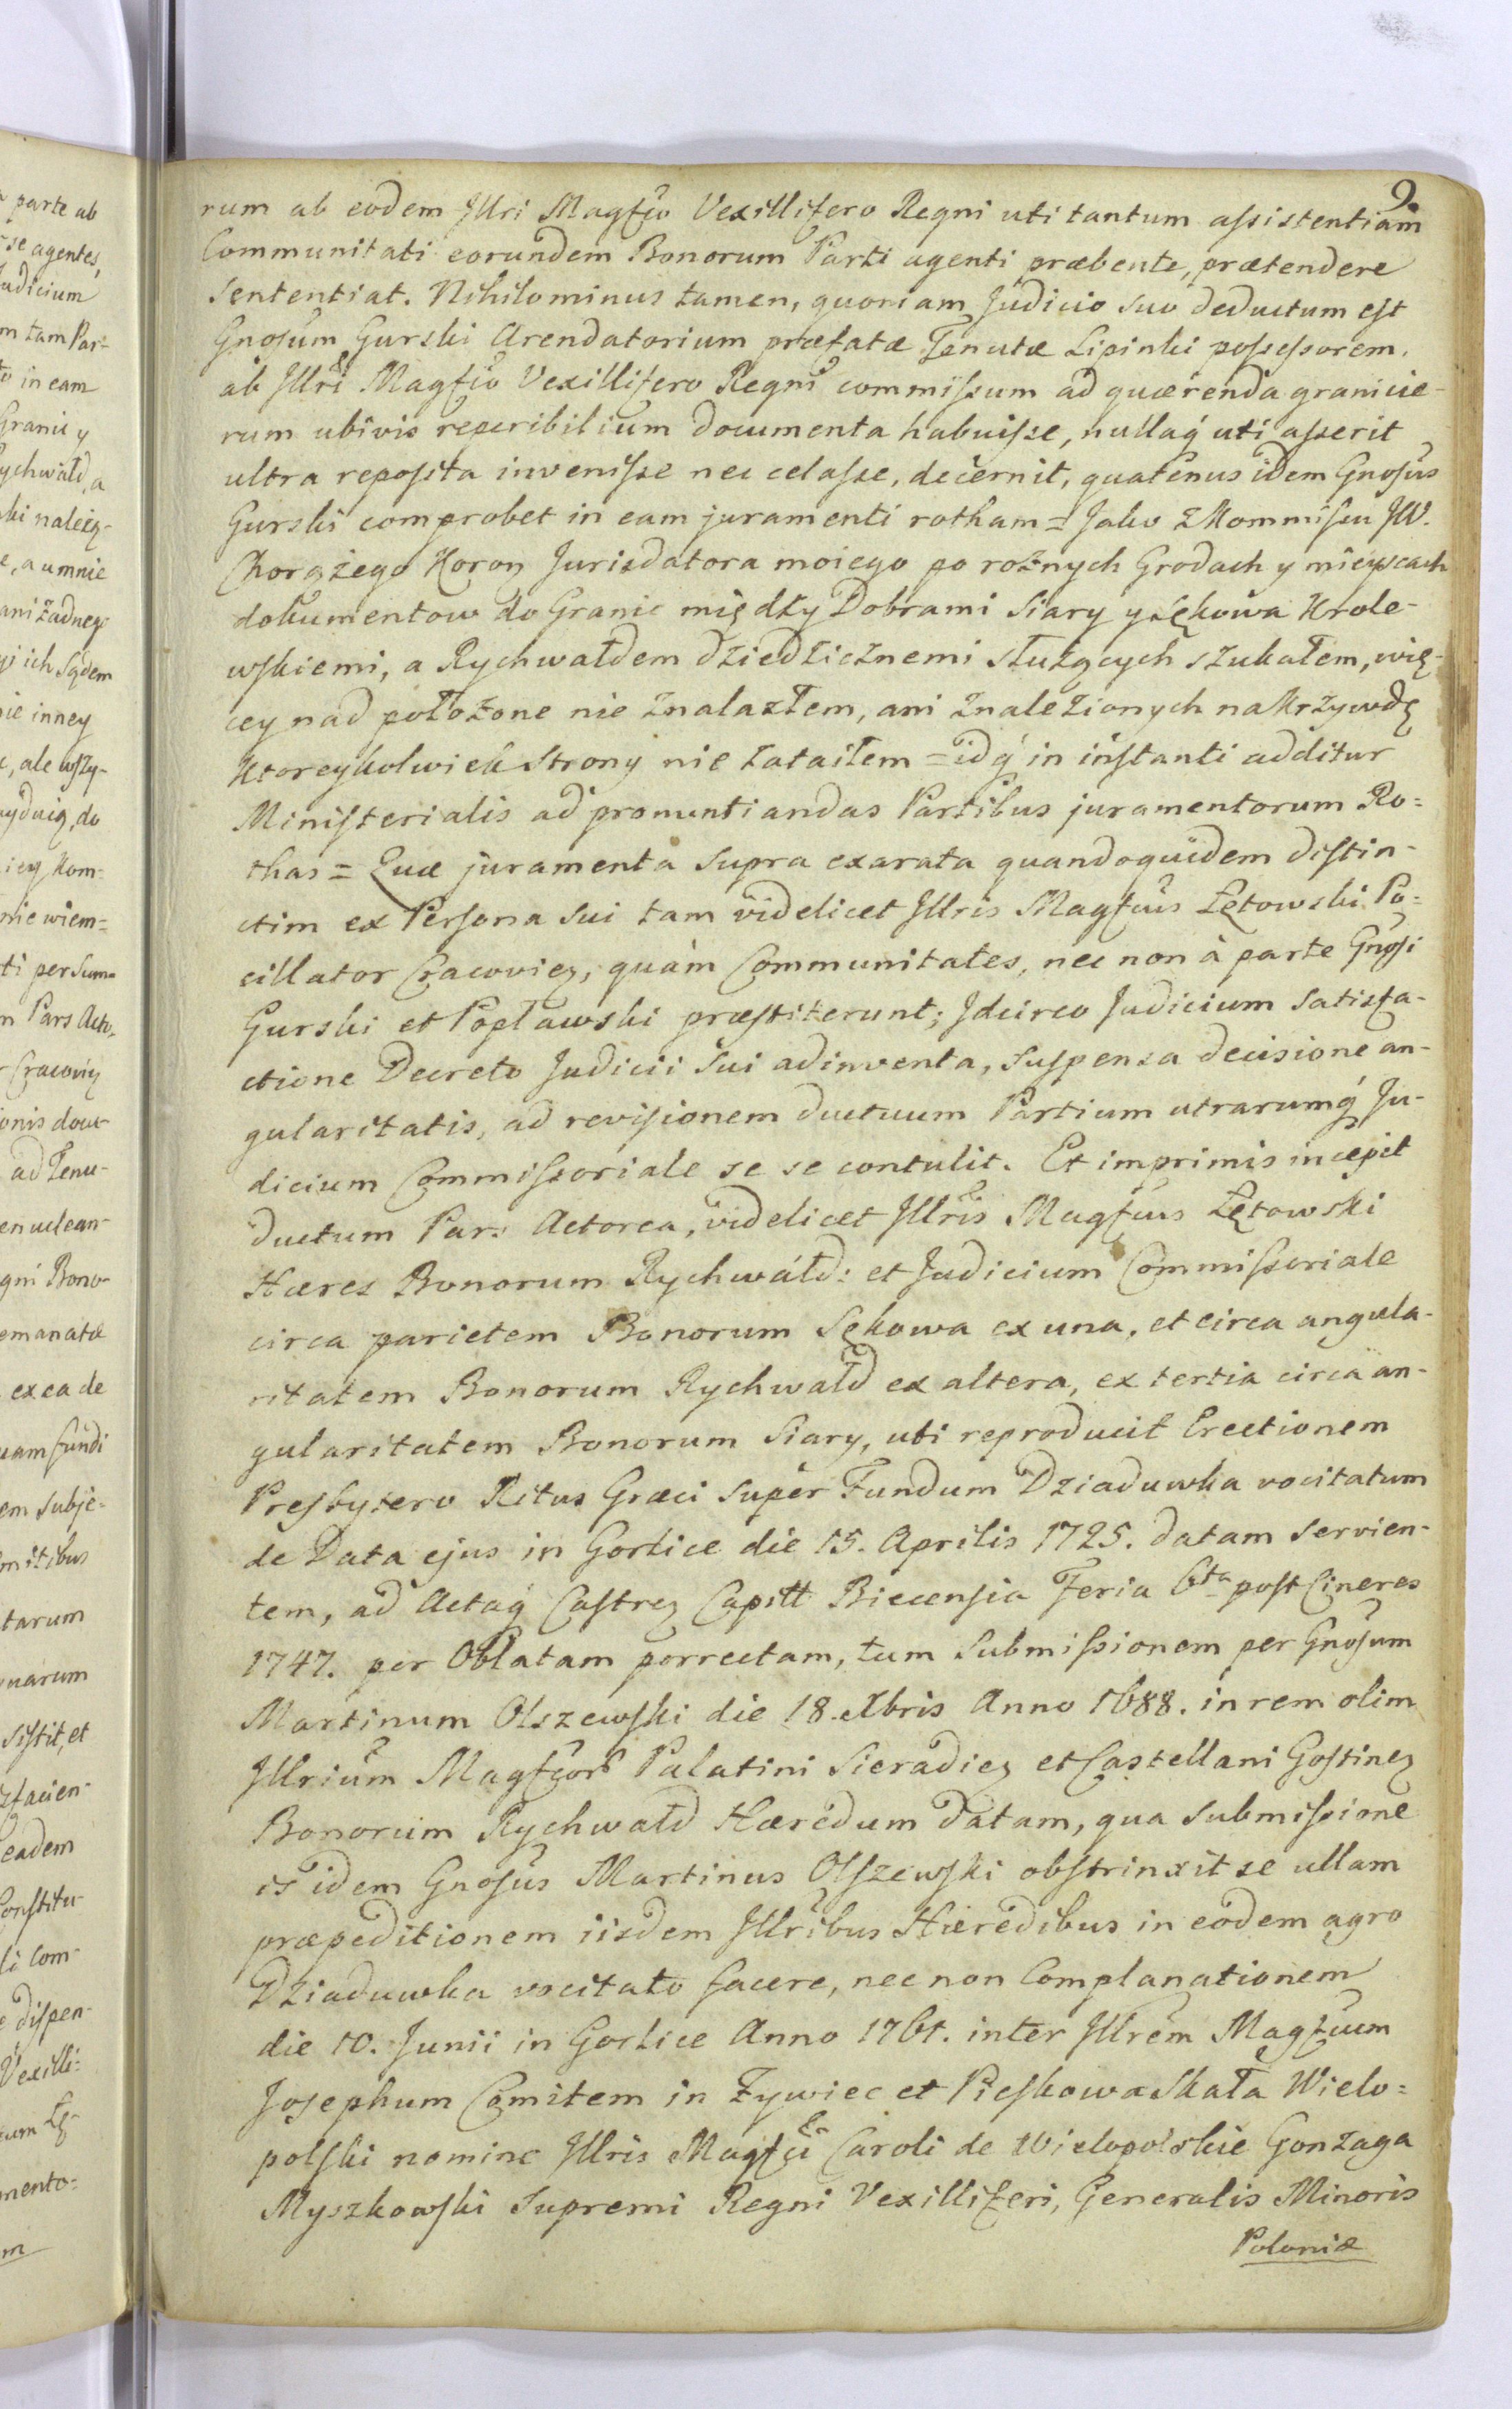 9.
rum ab eodem Jllri Magfco Vexillifero Regni uti tantum assistentiam
Communitati eorundem Bonorum Parti agenti præbente, prætendere
Sententiat. Nihilominus tamen, quoniam Judicio suo deductum est
Gnosum Gurski Arendatorium præfatæ Tenutæ Lipinki possessorem,
ab Jllri Magfco Vexillifero Regni commissum ad quærenda granicie-
rum ubivis reperibilium documenta habuisse, nullaq́ uti asserit
ultra reposita invenisse nec celasse, decernit, quatenus idem Gnosus
Gurski comprobet in eam juramenti rotham = Jako z Kommissu JW.
Chorążego Koron Jurisdatora moiego po rożnych Grodach y mieyscach
dokumentow do Granic między Dobrami Siary y Sękowa Krole-
wskiemi, a Rychwałdem dziedzicznemi służących szukałem, wię-
cey nad położone nie znalazłem, ani znalezionych na krzywdę
ktoreykolwiek strony nie zataiłem = idq́ in instanti additur
Ministerialis ad pronuntiandas Partibus juramentorum Ro=
thas = Quæ juramenta supra exarata quandoquidem distin-
ctim ex Persona sui tam videlicet Jllris Magfcus Łętowski Po=
cillator Cracovieȝ, quàm Communitates, nec non à parte Gnosi
Gurski et Popławski præstiterunt; Jdcirco Judicium satisfa-
ctione Decreto Judicii sui adinventa, suspensa decisione an-
gularitatis, ad revisionem ductuum Partium utrarumq́ Ju-
dicium Commissoriale se se contulit. Et imprimis incepit
ductum Par: Actorea, videlicet Jllris Magfcus Łętowski
Hæres Bonorum Rychwałd: et Judicium Commissoriale
circa parietem Bonorum Sękowa ex una, et circa angula-
ritatem Bonorum Rychwałd ex altera, ex tertia circa an-
gularitatem Bonorum Siary, uti reproducit Erectionem
Presbytero Ritus Græci super Fundum Dziaduwka vocitatum
de Data ejus in Gorlice die 15. Aprilis 1725. datam servien-
tem, ad Actaq́ Castreȝ Capitt Biecensia Feria 6ta post Cineres
1747. per Oblatam porrectam, tum Submissionem per Gnosum
Martinum Olszewski die 18. Xbris Anno 1688. in rem olim
Jllrium Magfcor Palatini Sieradieȝ et Castellani Gostineȝ
Bonorum Rychwałd Hæredum datam, qua submissione
is idem Gnosus Martinus Olszewski obstrinxit se ullam
præpeditionem iisdem Jllribus Hæredibus in eodem agro
Dziaduwka vocitato facere, nec non Complanationem
die 10. Junii in Gorlice Anno 1761. inter Jllrem Magfcum
Josephum Comitem in Żywiec et Pieskowa Skała Wielo=
polski nomine Jllris Magfci Caroli de Wielopolskie Gonzaga
Myszkowski Supremi Regni Vexilliferi, Generalis Minoris
Poloniæ